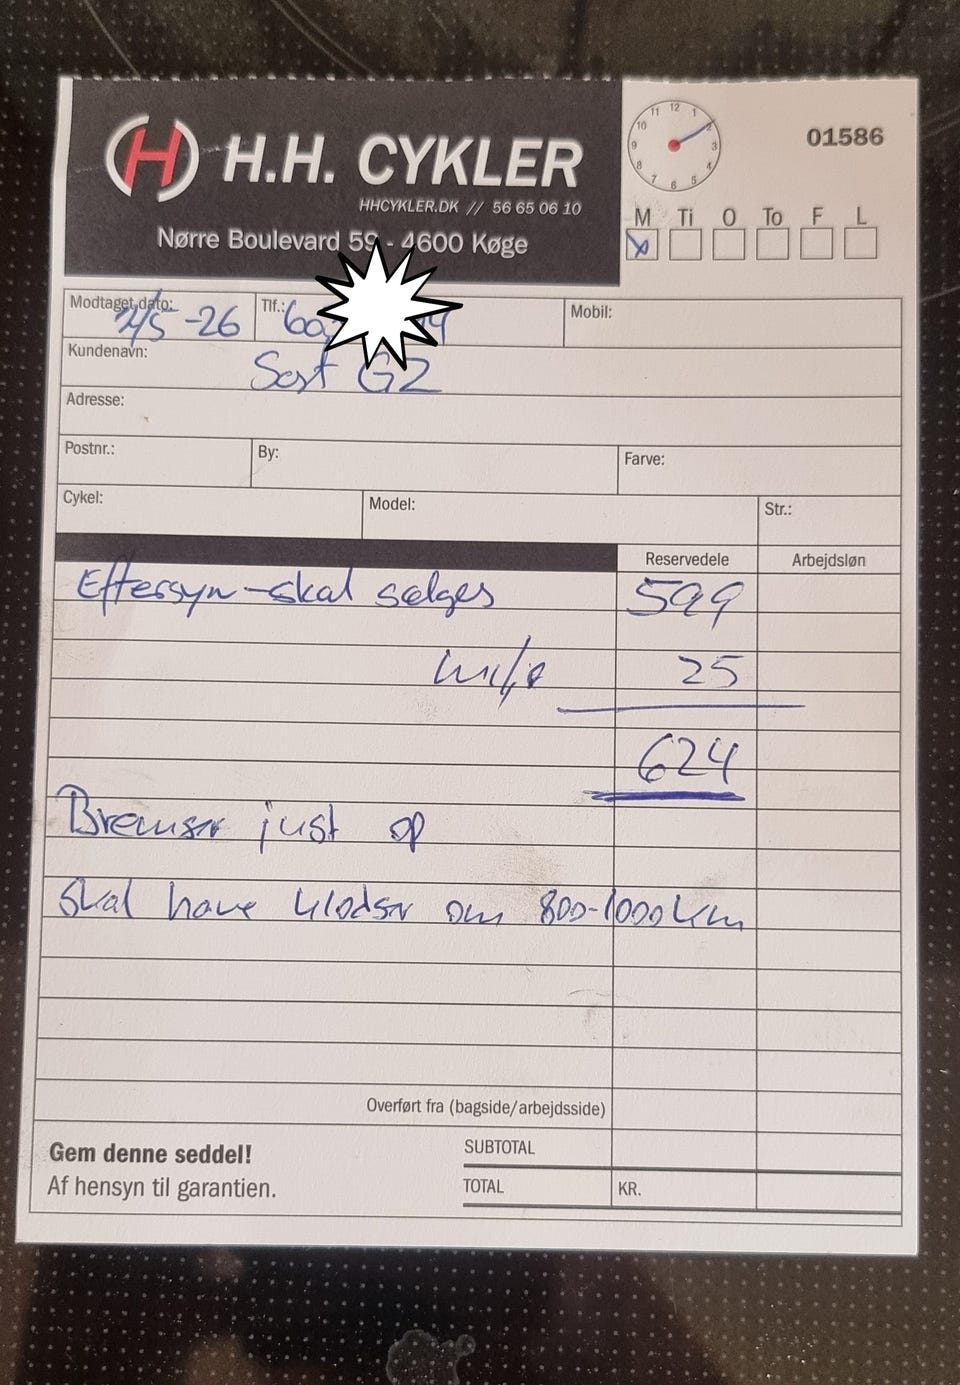 H H.H. CYKLER
HHCYKLER.DK // 56 65 06 10
Nørre Boulevard 59 - 4600 Køge
11 12 1
10 2
9 3
8 4
7 6 5
01586
M Ti O To F L
Modtaget dato: 2/5-26 Tlf.: 60 Mobil:
Kundenavn: Sort G2
Adresse:
Postnr.: By: Farve:
Cykel: Model: Str.:
Reservedele Arbejdsløn
Eftersyn - skal sælges 599
25
624
Bremser just op
skal have klodser om 800-1000 km
Overført fra (bagside/arbejdsside)
Gem denne seddel! SUBTOTAL
Af hensyn til garantien. TOTAL KR.